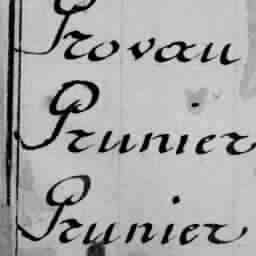 Provau
Prunier
Prunier